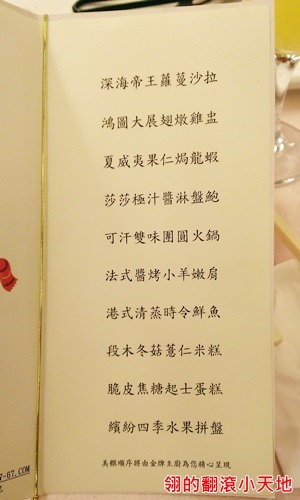 深海帝王蘿蔓沙拉
鴻圖大展翅燉雞盅
夏威夷果仁焗龍蝦
莎莎極汁醬淋盤鮑
可汗雙味團圓火鍋
法式醬烤小羊嫩肩
港式清蒸時令鮮魚
段木冬菇薏仁米糕
脆皮焦糖起士蛋糕
繽紛四季水果拼盤
美饌順序將由金牌主廚為您精心呈現
-G7.COM
翎的翻滾小天地